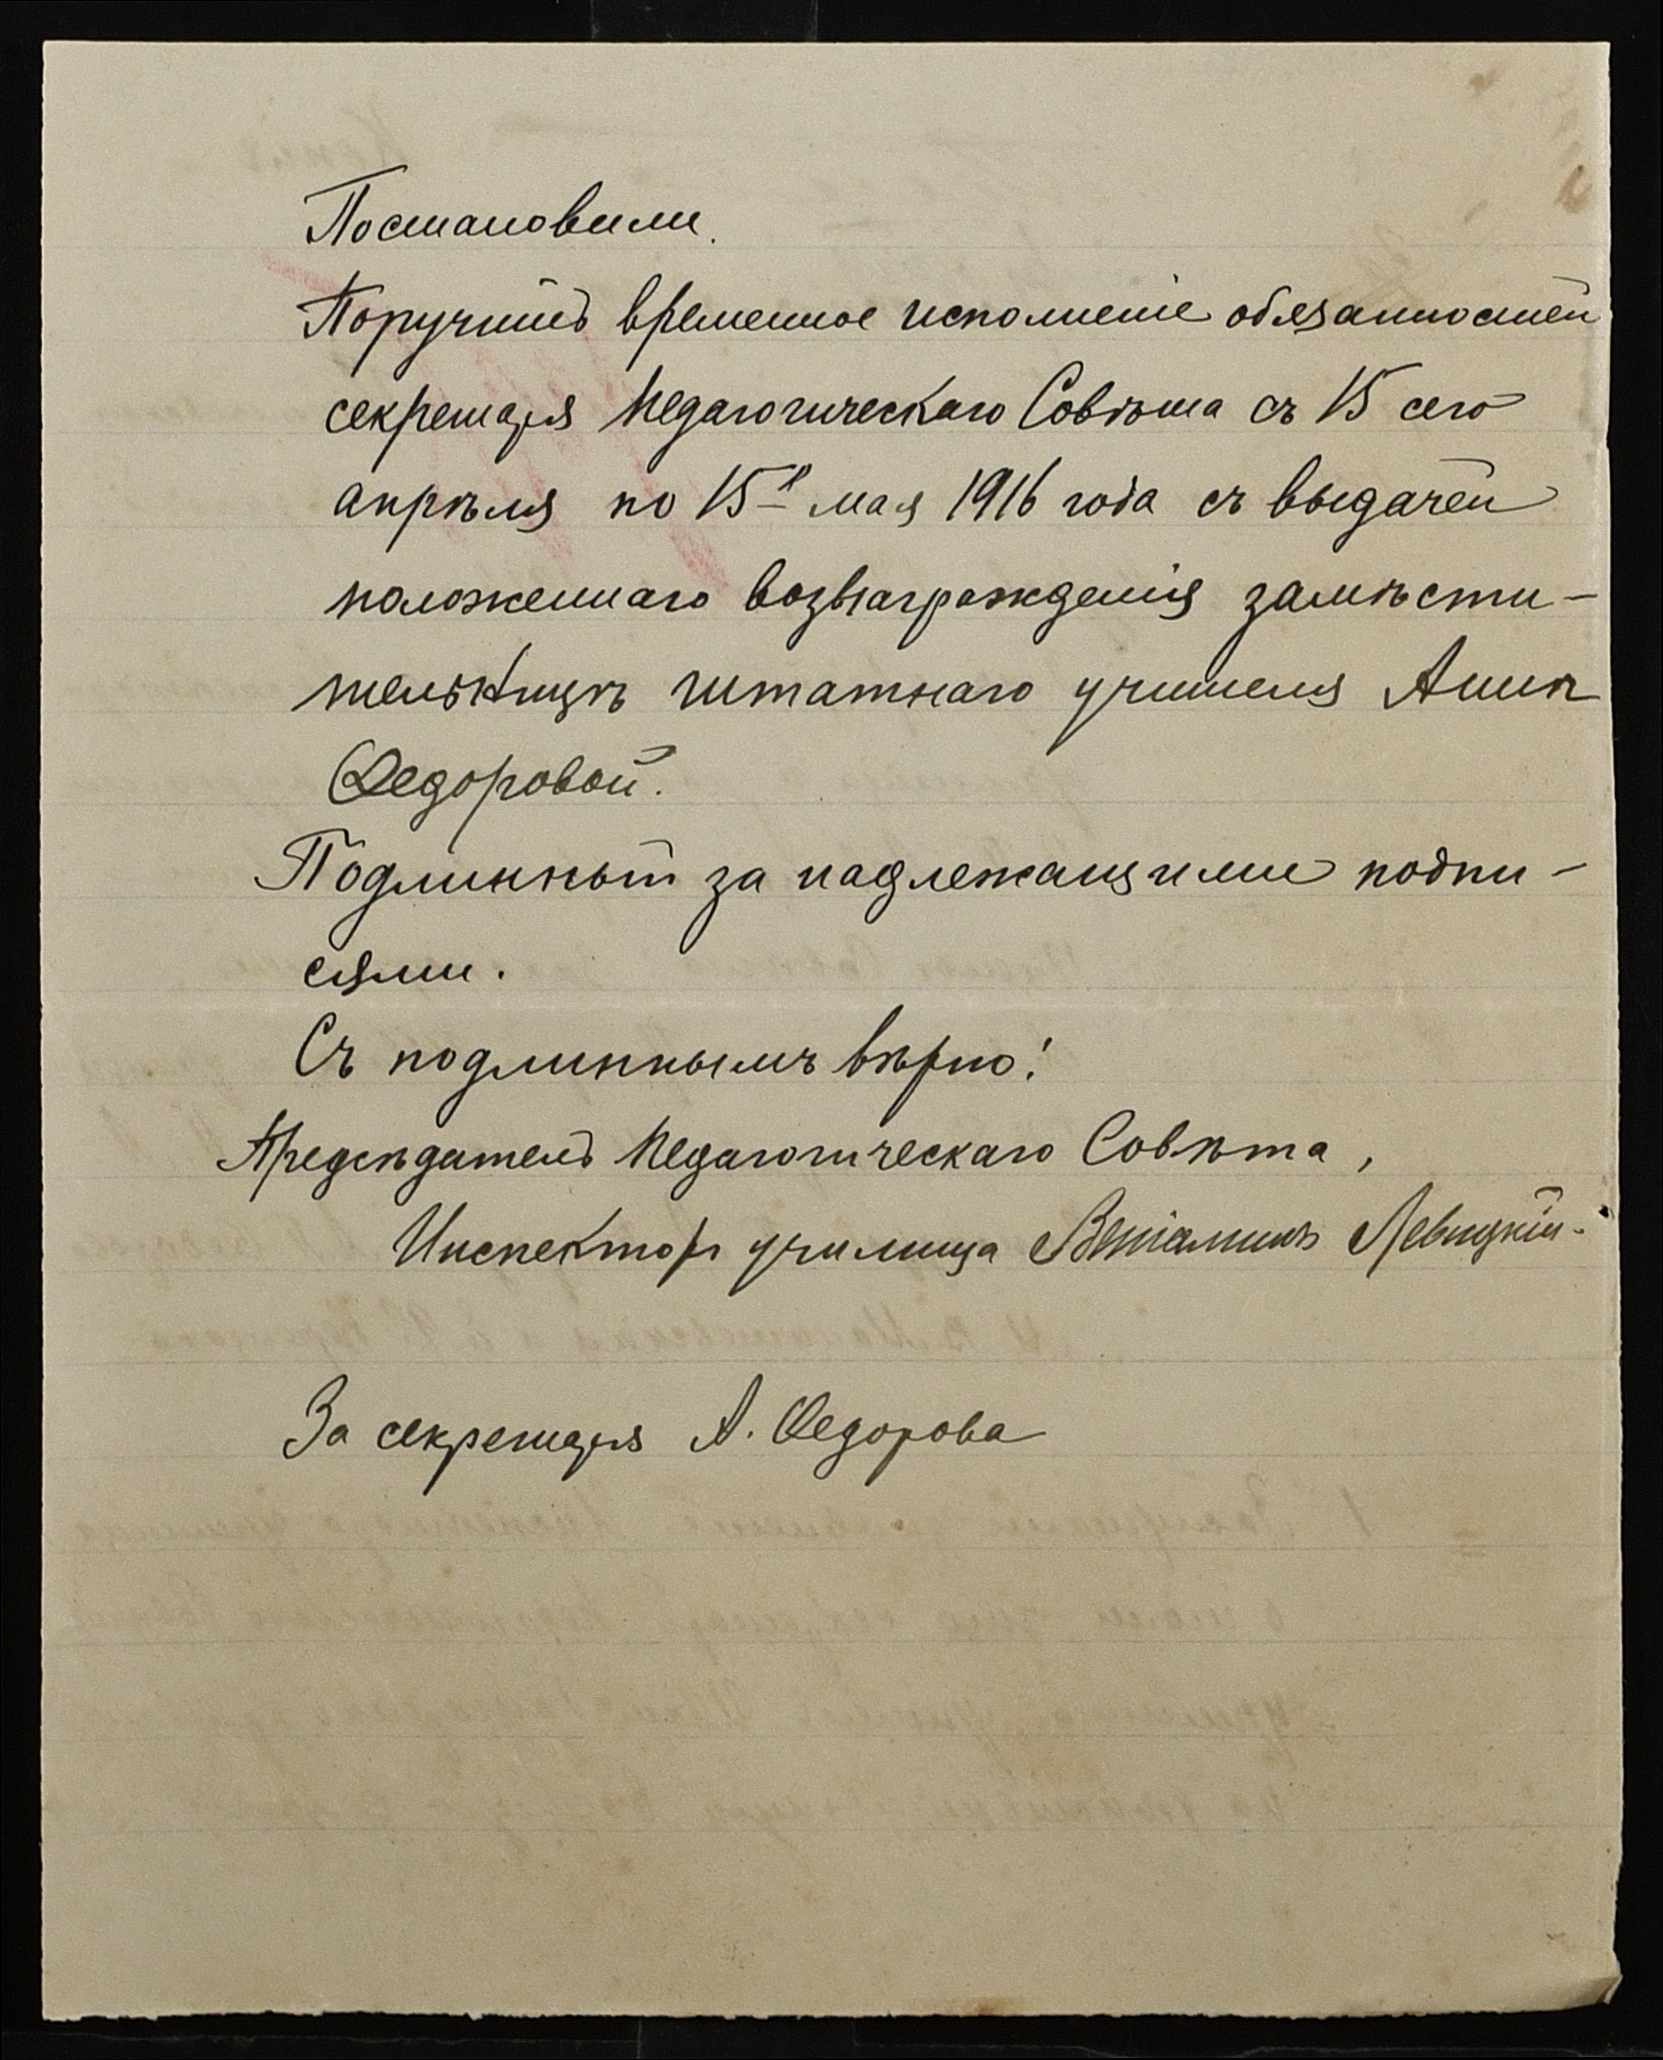 Постановили.
Поручить временное исполненіе обязанностей
секретаря Педагогическаго Совѣта съ 15 сего
апрѣля по 15е мая 1916 года съ выдачей
положеннаго вознагражденія замѣсти-
тельницѣ штатнаго учителя Аннѣ
Ѳедоровой.
Подлинный за надлежащими подпи-
сями.
Съ подлиннымъ вѣрно!
Предсѣдатель Педагогическаго Совѣта,
Инспекторъ училища Веніаминъ Левицкій.
За секретаря А. Ѳедорова